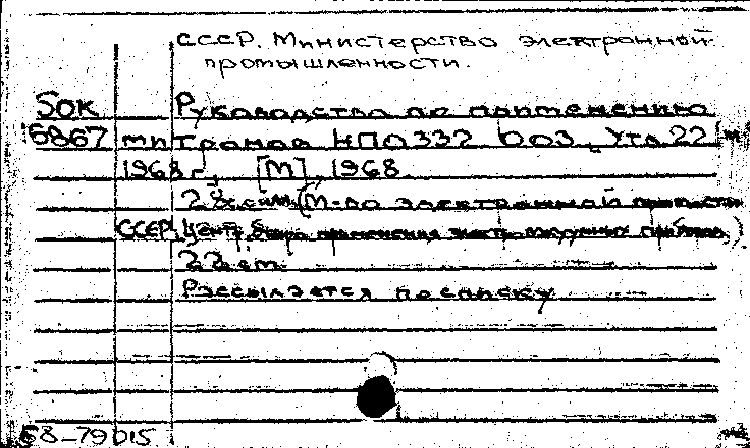 СССР. Министерство электронной
промышленности.
50к Руководство по применению
6867 митронов НПО332 003. Утв. 22
1968 г. [М], 1968.
28 с. (М-во электронной промышл.
СССР. Центр. бюро применения электровакуумных приборов)
22 см.
Рассылается по списку
68-79015